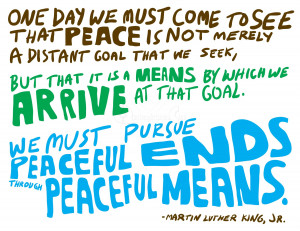 ONE DAY WE MUST COME TO SEE
THAT PEACE IS NOT MERELY
A DISTANT GOAL THAT WE SEEK,
BUT THAT IT IS A MEANS BY WHICH WE
ARRIVE AT THAT GOAL.
WE MUST PURSUE
PEACEFUL ENDS
THROUGH PEACEFUL MEANS.
-MARTIN LUTHER KING, JR.